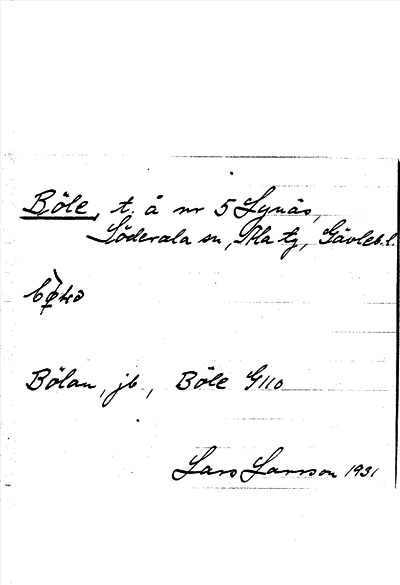 Böle, t. å nr 5 Lynäs,
Söderala sn, Ala tg, Gävleb. l.
Bölan, jb., Böle G110
Lars Larsson 1931